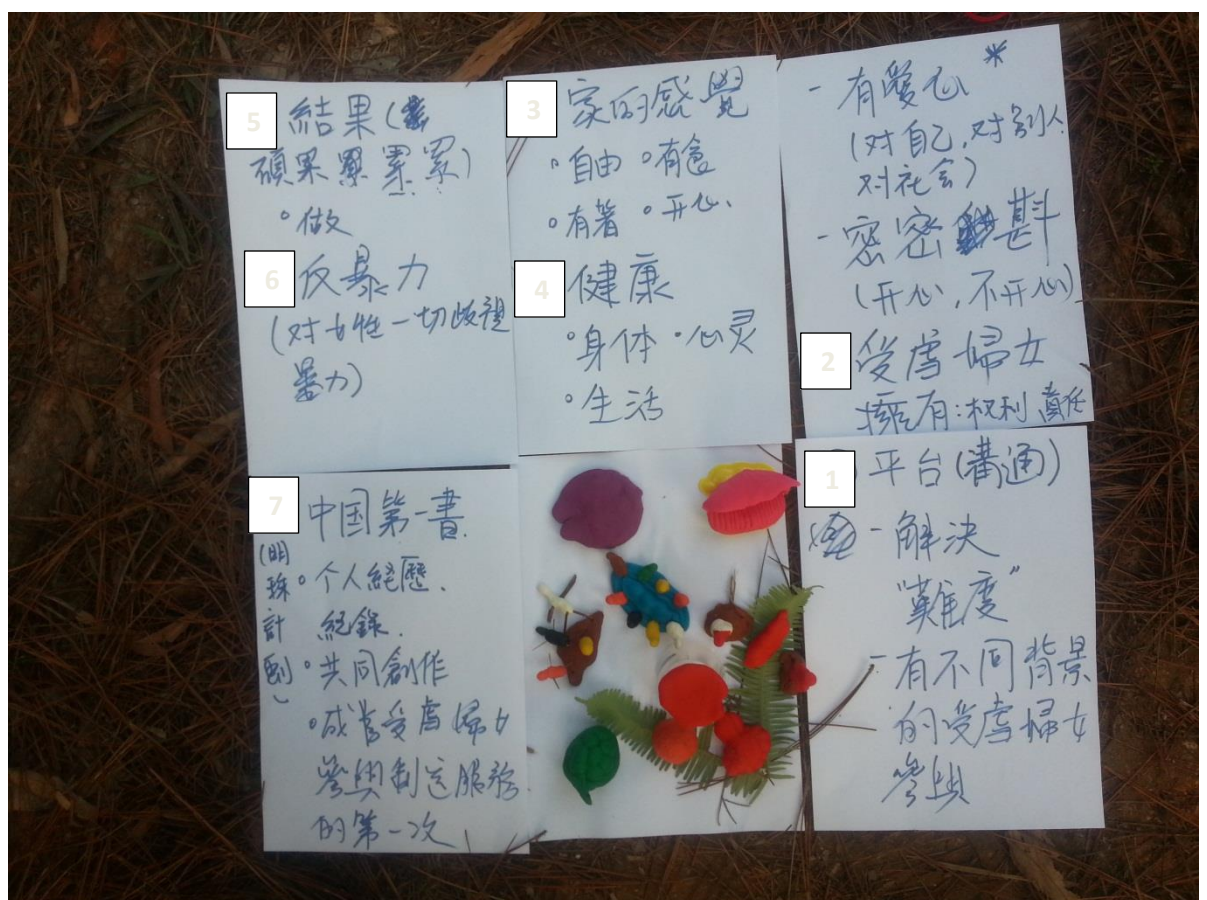 5 結果(
碩果累累累)
◦做
6 反暴力
(对女性一切歧視
暴力)
3 家的感覺
◦自由 ◦有食
◦有著 ◦开心
4 健康
◦身体 ◦心灵
◦生活
- 有愛心 *
(对自己,对别人
对社会)
- 密密斟
(开心,不开心)
2 受虐婦女
擁有:权利 責任
7 中国第一書.
(明珠計劃)
◦个人經歷.
紀錄.
◦共同創作
◦成為受虐婦女
參與制定服務
的第一次
1 平台(溝通)
- 解决
"難度"
- 有不同背景
的受虐婦女
參與